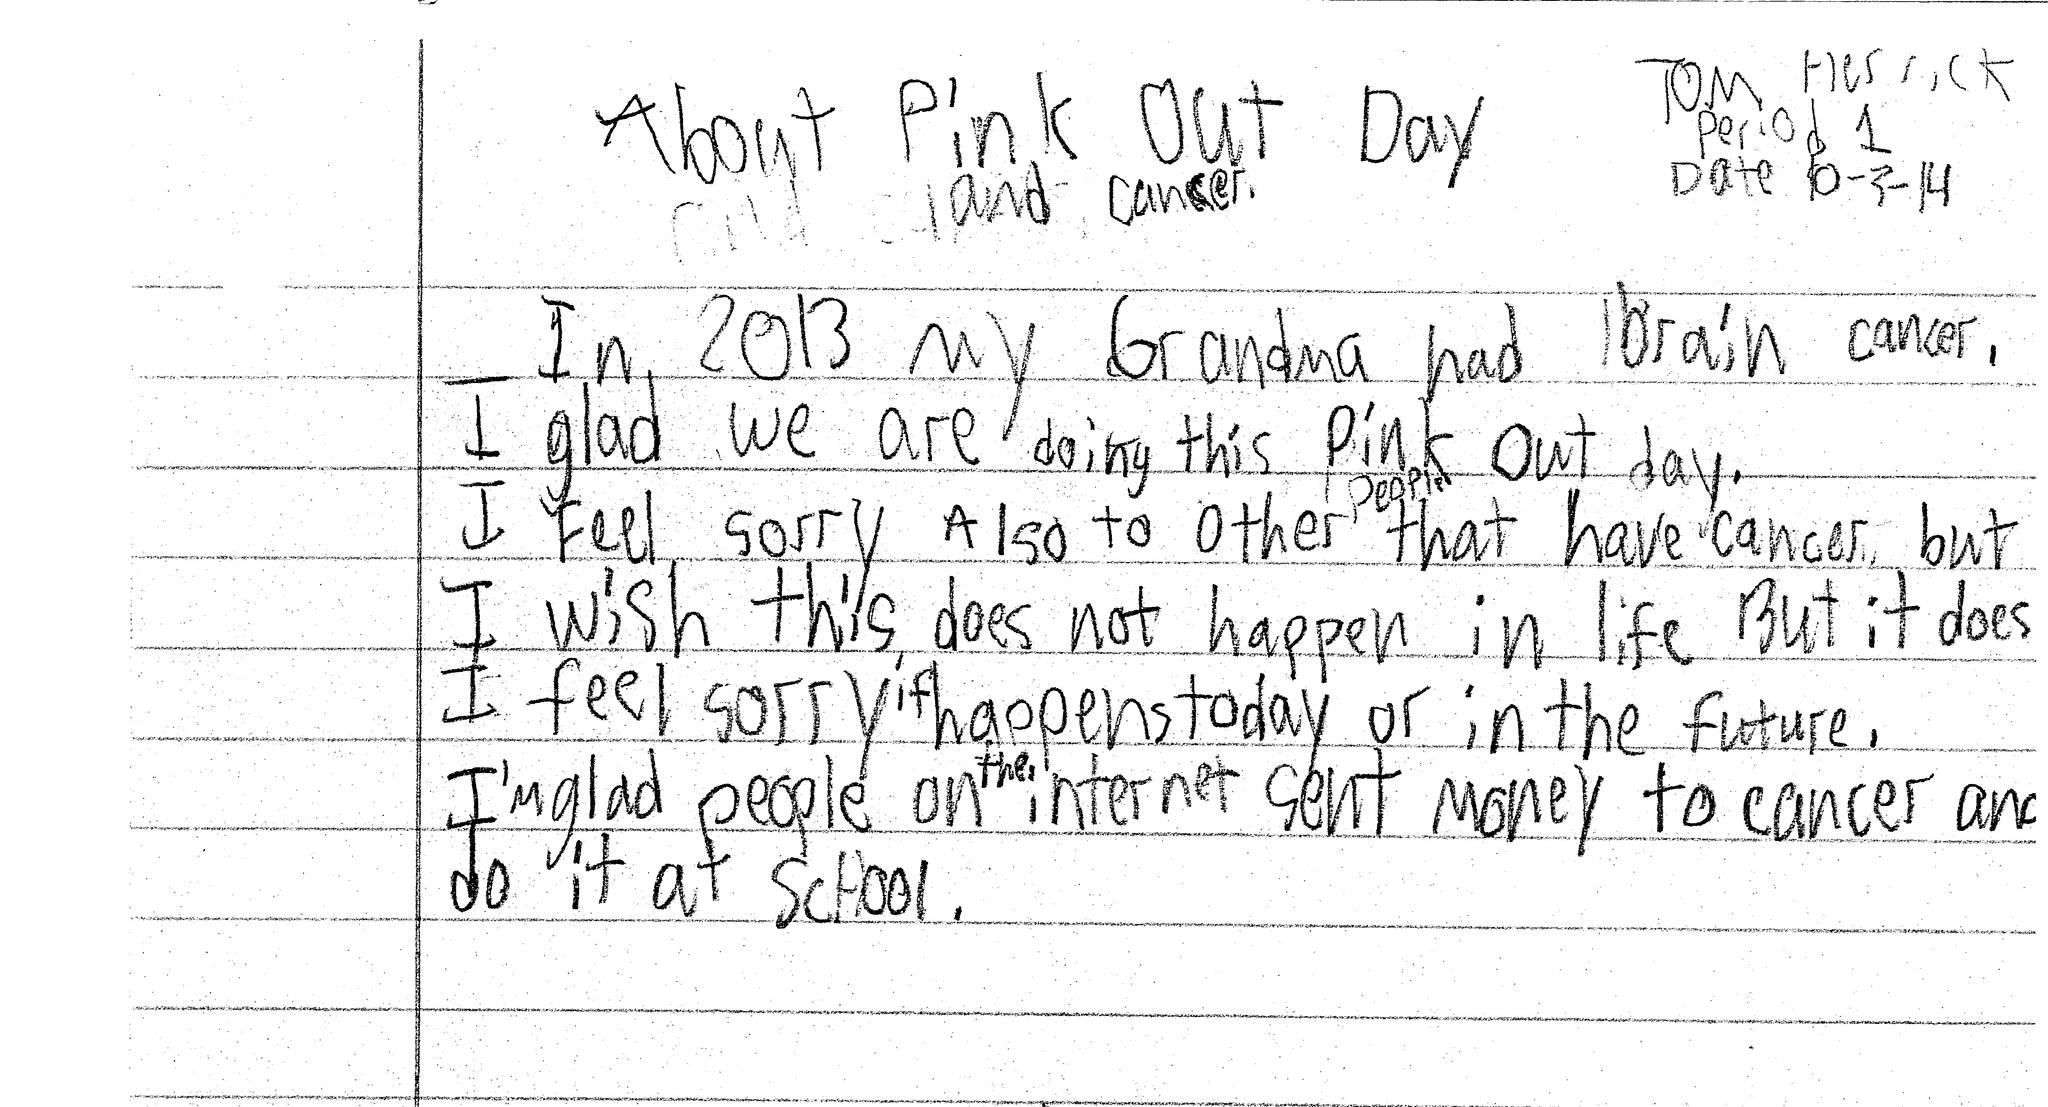 Tom Herrick
Period 1
Date 10-3-14
About Pink Out Day
and cancer.
In 2013 my Grandma had brain cancer.
I glad we are doing this Pink Out day.
I feel sorry Also to other people that have cancer, but
I wish this does not happen in life But it does
I feel sorry if happens today or in the future.
I'm glad people on the internet sent money to cancer and
do it at school.